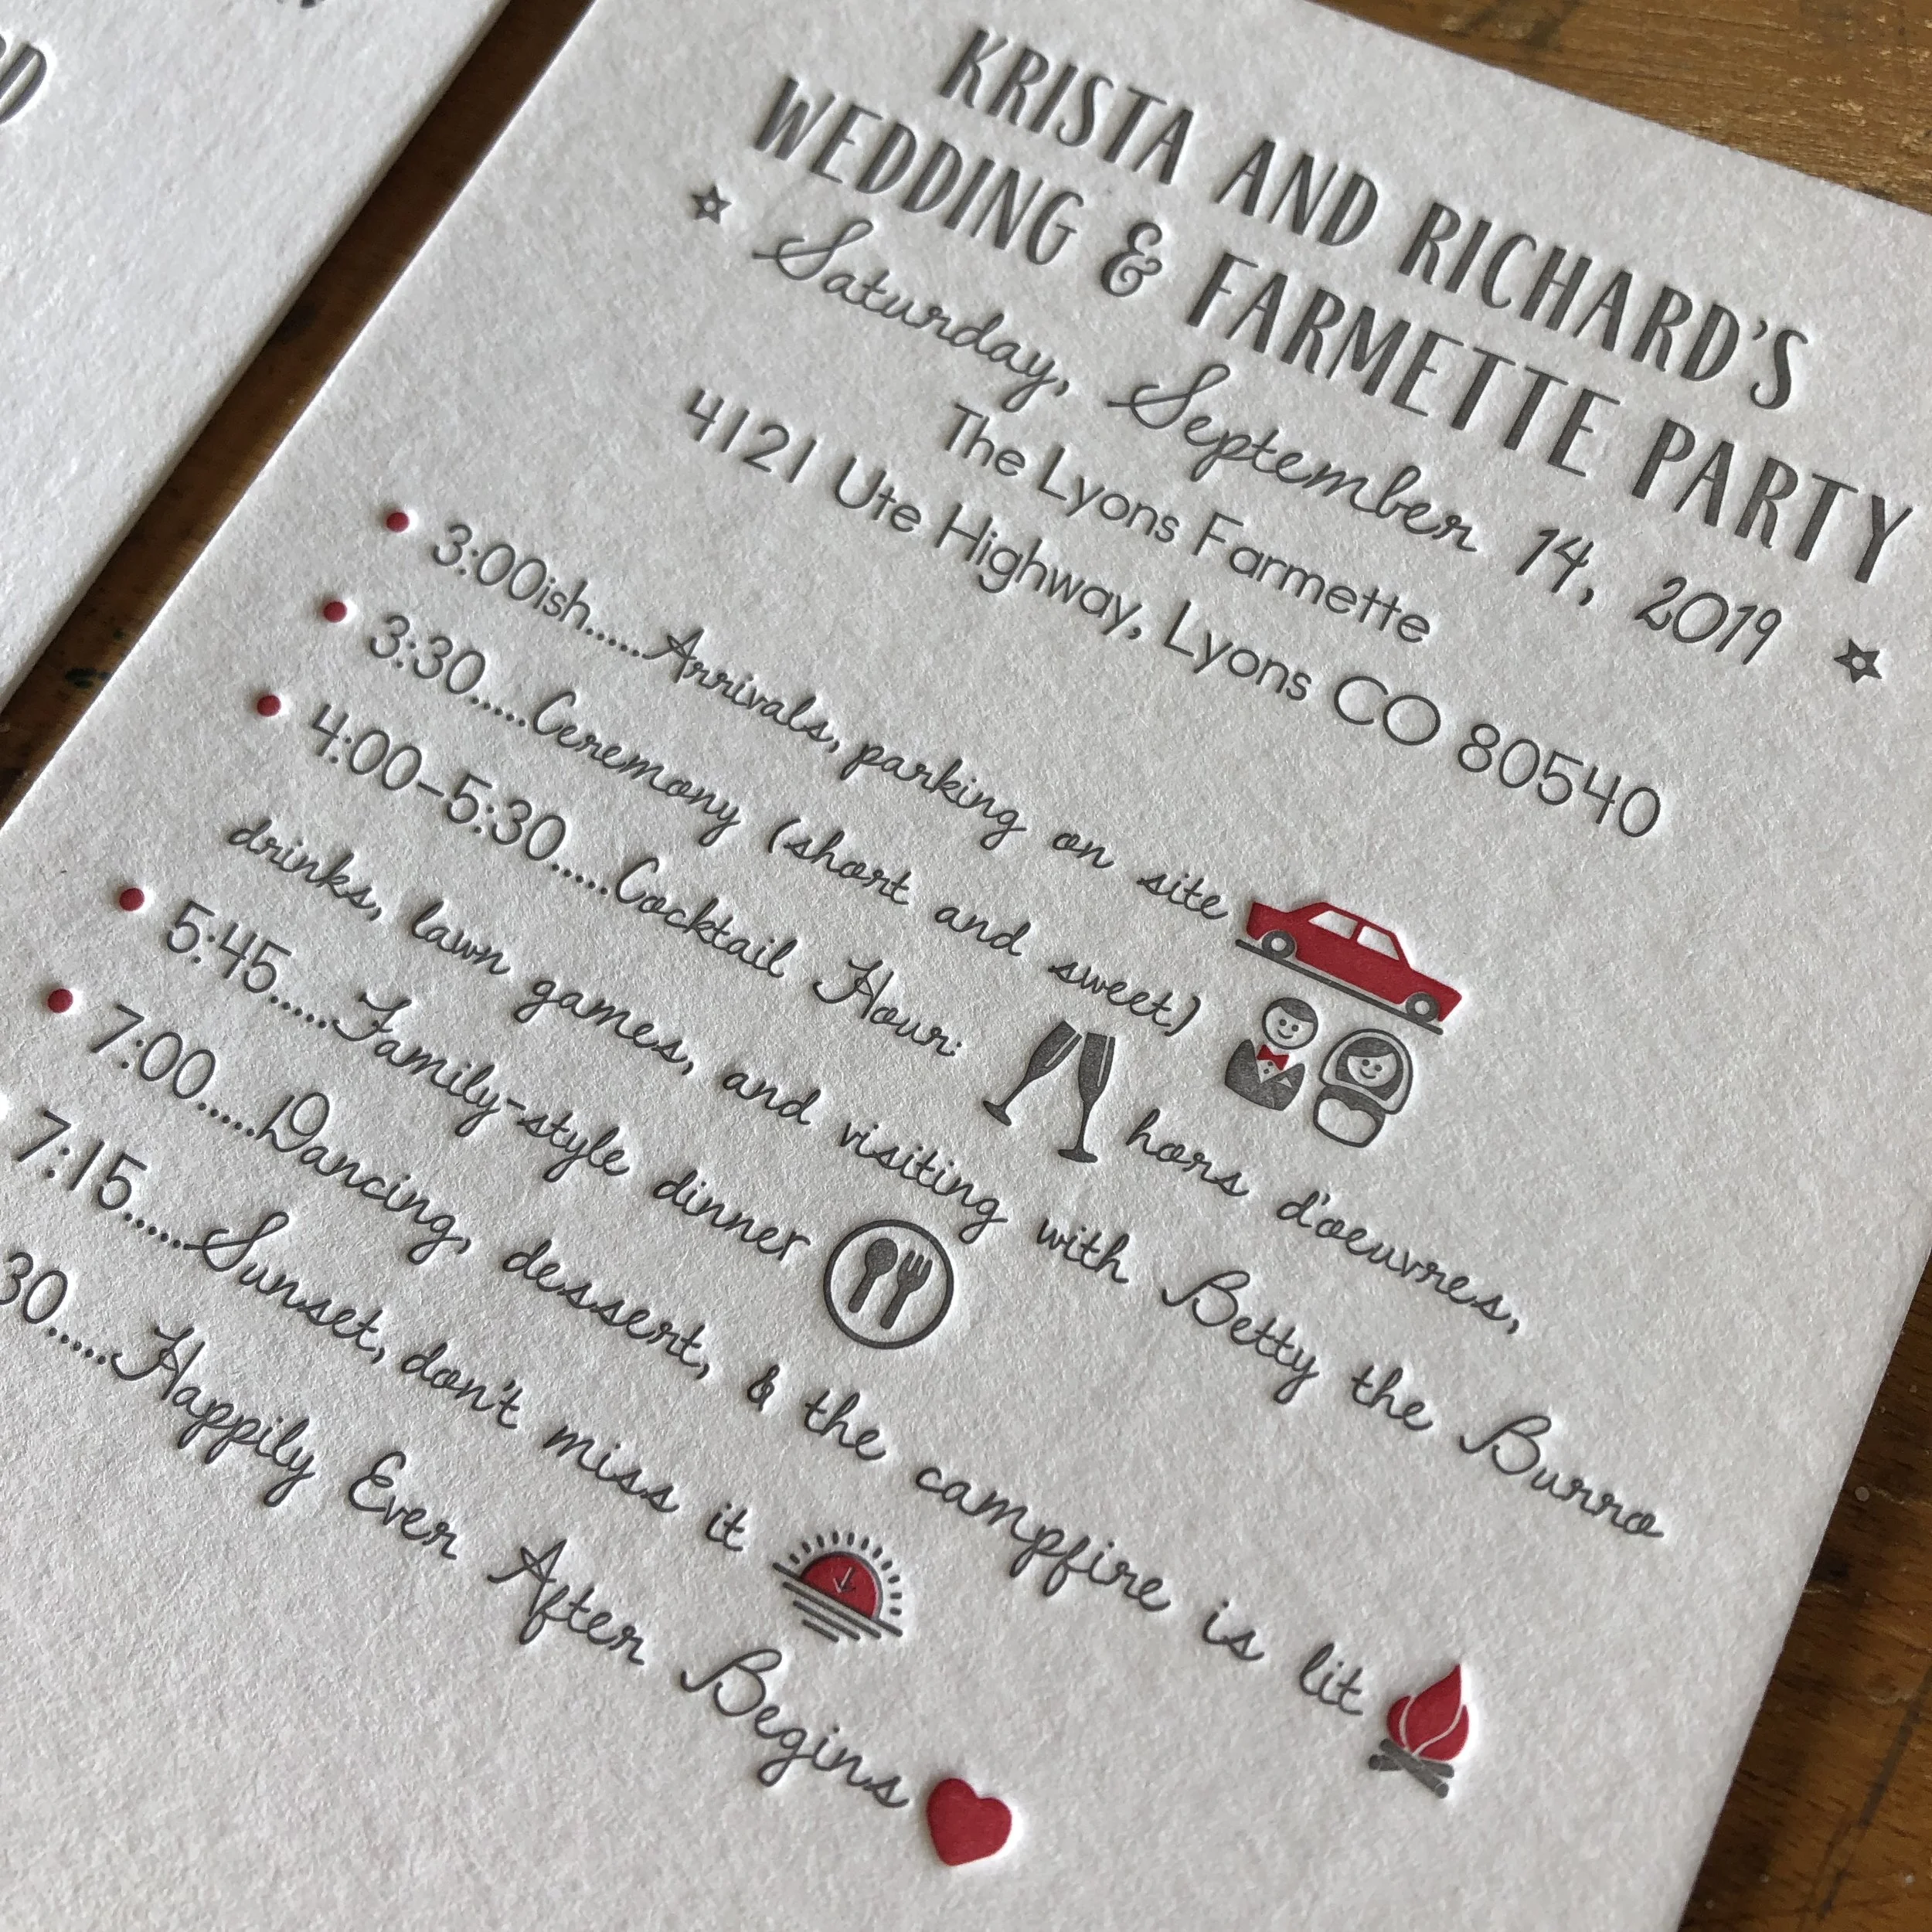 KRISTA AND RICHARD'S
WEDDING & FARMETTE PARTY
Saturday, September 14, 2019
The Lyons Farmette
4121 Ute Highway, Lyons CO 80540
3:00ish.....Arrivals, parking on site
3:30.....Ceremony (short and sweet)
4:00-5:30.....Cocktail Hour: hors d'oeuvres,
drinks, lawn games, and visiting with Betty the Burro
5:45.....Family-style dinner
7:00.....Dancing, dessert, & the campfire is lit
7:15.....Sunset, don't miss it
30.....Happily Ever After Begins